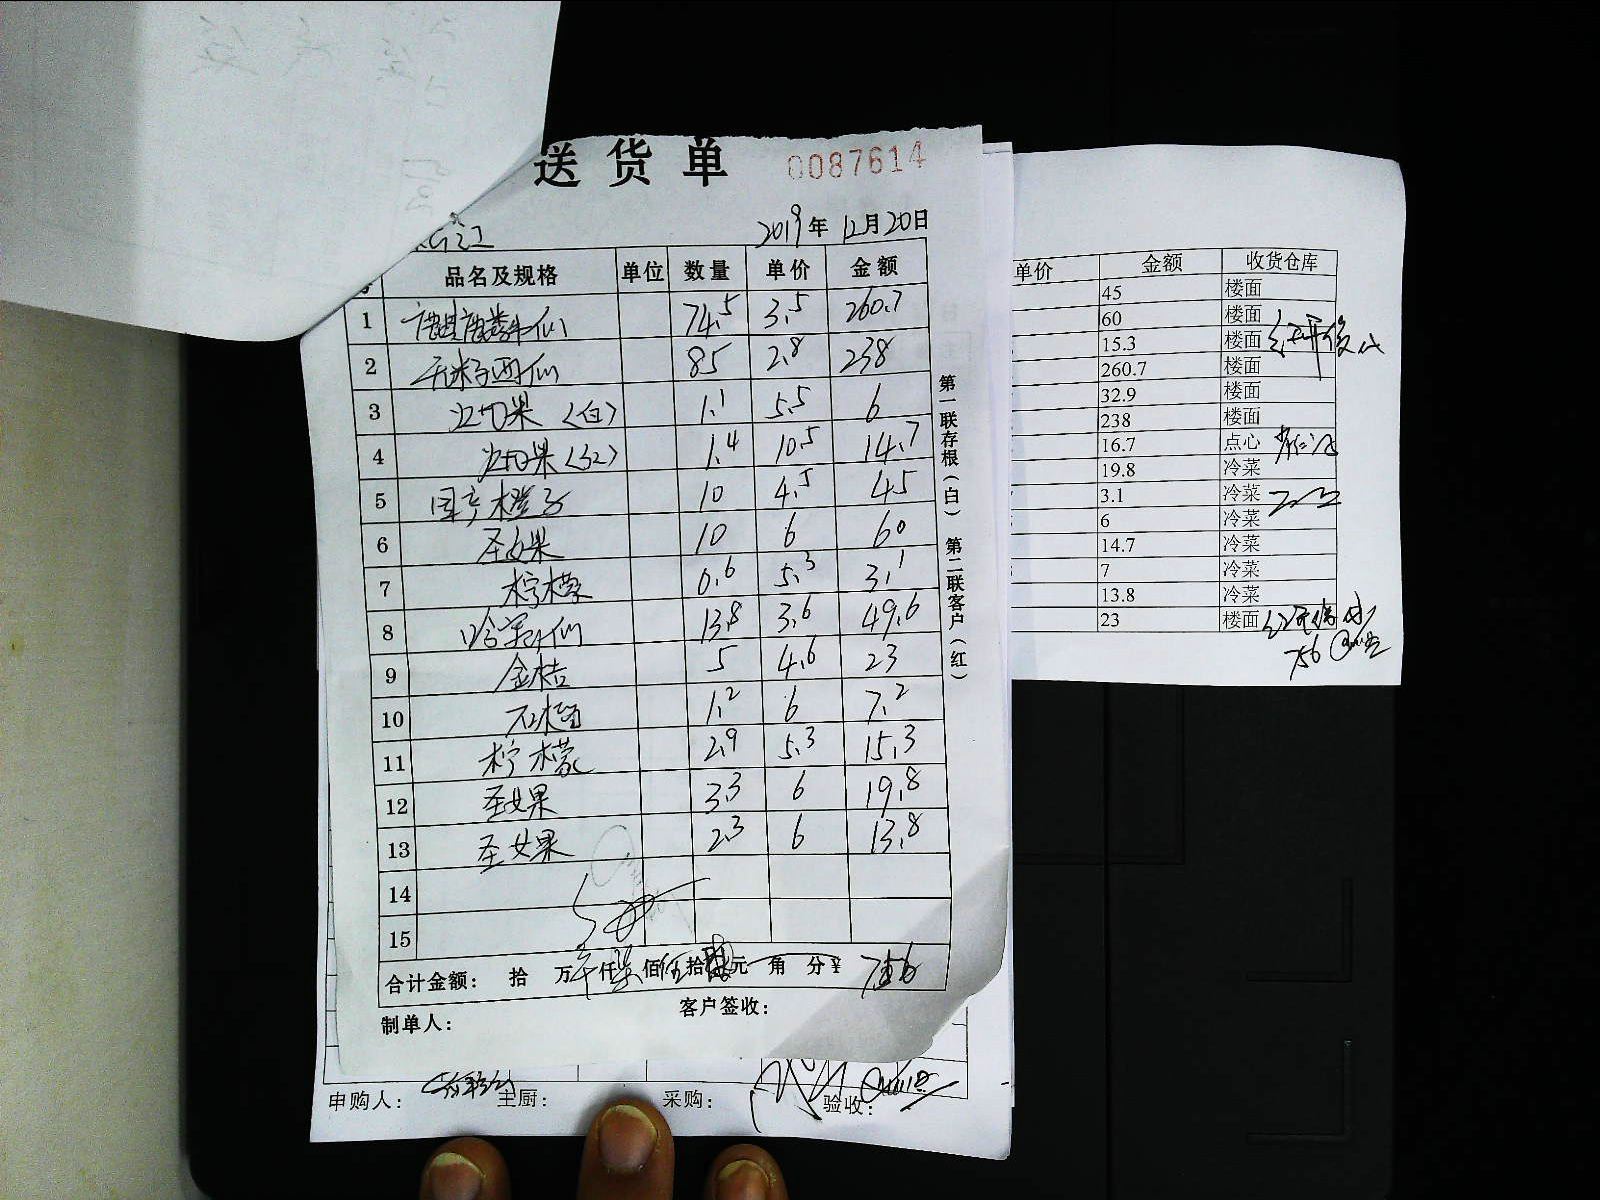 送货单 0087614
2019年12月20日
品名及规格 单位 数量 单价 金额
1 74.5 3.5 260.7
2 无籽西仙 85 2.8 238
3 火龙果(白) 1.1 5.5 6
4 火龙果(红) 1.4 10.5 14.7
5 国产橙子 10 4.5 45
6 圣女果 10 6 60
7 柠檬 0.6 5.3 3.1
8 哈密仙 13.8 3.6 49.6
9 金桔 5 4.6 23
10 石榴 1.2 6 7.2
11 柠檬 2.9 5.3 15.3
12 圣女果 3.3 6 19.8
13 圣女果 2.3 6 13.8
14
15
合计金额: 拾 万 仟 佰 拾 元 角 分 ¥ 756
制单人: 客户签收:
第一联存根(白) 第二联客户(红)
申购人: 主厨: 采购: 验收:
单价 金额 收货仓库
45 楼面
60 楼面
15.3 楼面
260.7 楼面
32.9 楼面
238 楼面
16.7 点心
19.8 冷菜
3.1 冷菜
6 冷菜
14.7 冷菜
7 冷菜
13.8 冷菜
23 楼面
756